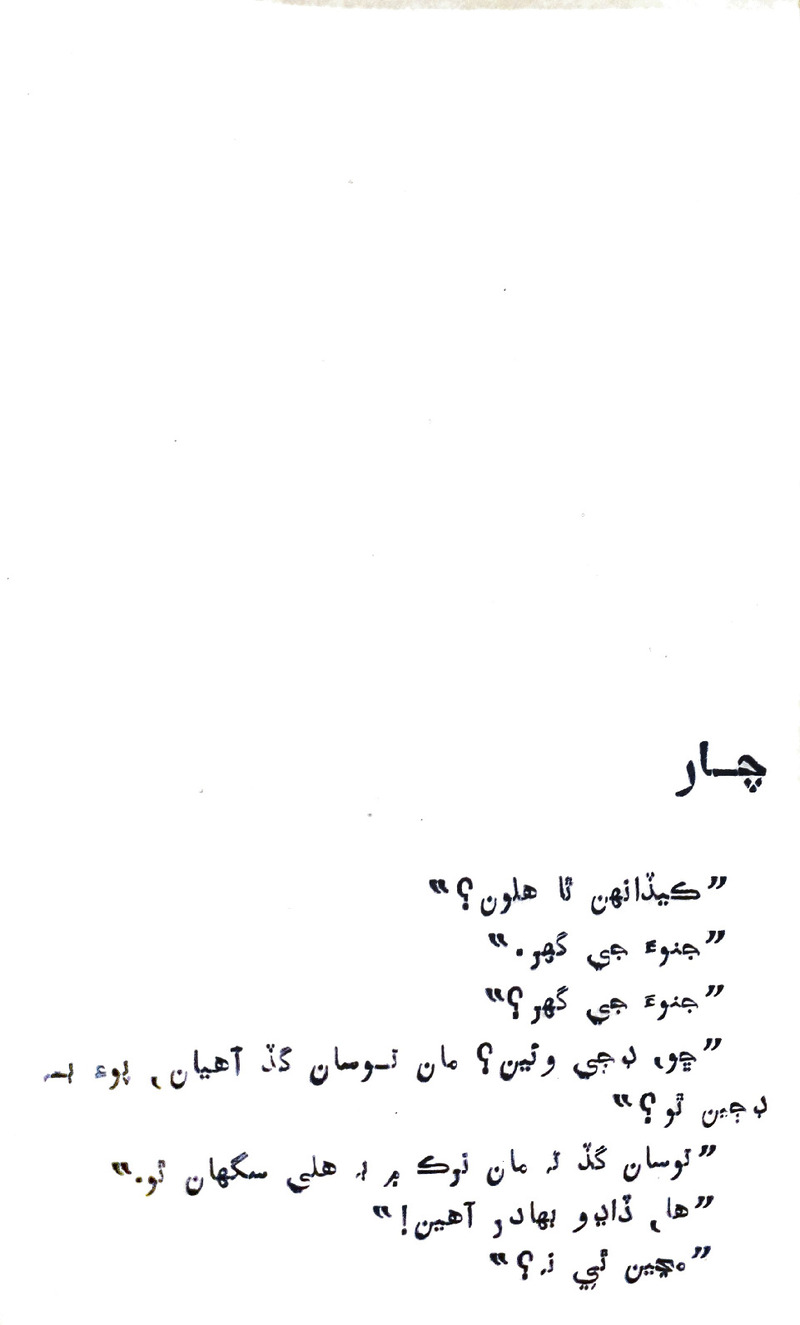 چار
”ڪيڏانهن ٿا هلون؟“
”جنوءَ جي گهر.“
”جنوءَ جي گهر؟“
”ڇو، ڊڄي وئين؟ مان توسان گڏ آهيان، پوءِ بہ
ڊڄين ٿو؟“
”توسان گڏ تہ مان نرڪ ۾ بہ هلي سگهان ٿو.“
”ها، ڏاڍو بهادر آهين!“
”مڃين ٿي نہ؟“